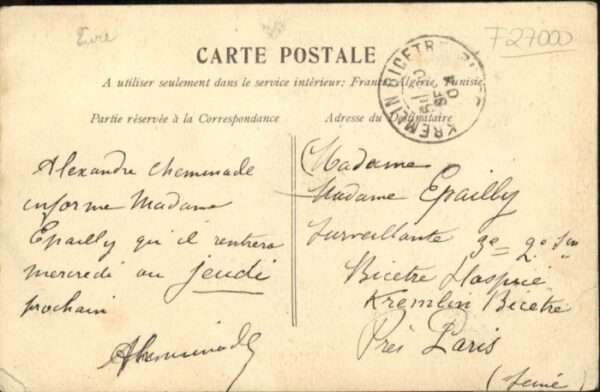 Eure
F27000
CARTE POSTALE
A utiliser seulement dans le service intérieur: France, Algérie, Tunisie.
KREMLIN BICETRE SEINE
04
Partie réservée à la Correspondance
Adresse du Destinataire
Alexandre Cheminade
informe Madame
Epailly qu'il rentrera
mercredi ou jeudi
prochain
ACheminade
Madame
Madame Epailly
Surveillante 3e = 2e
Bicetre Hospice
Kremlin Bicetre
Près Paris
(Seine)